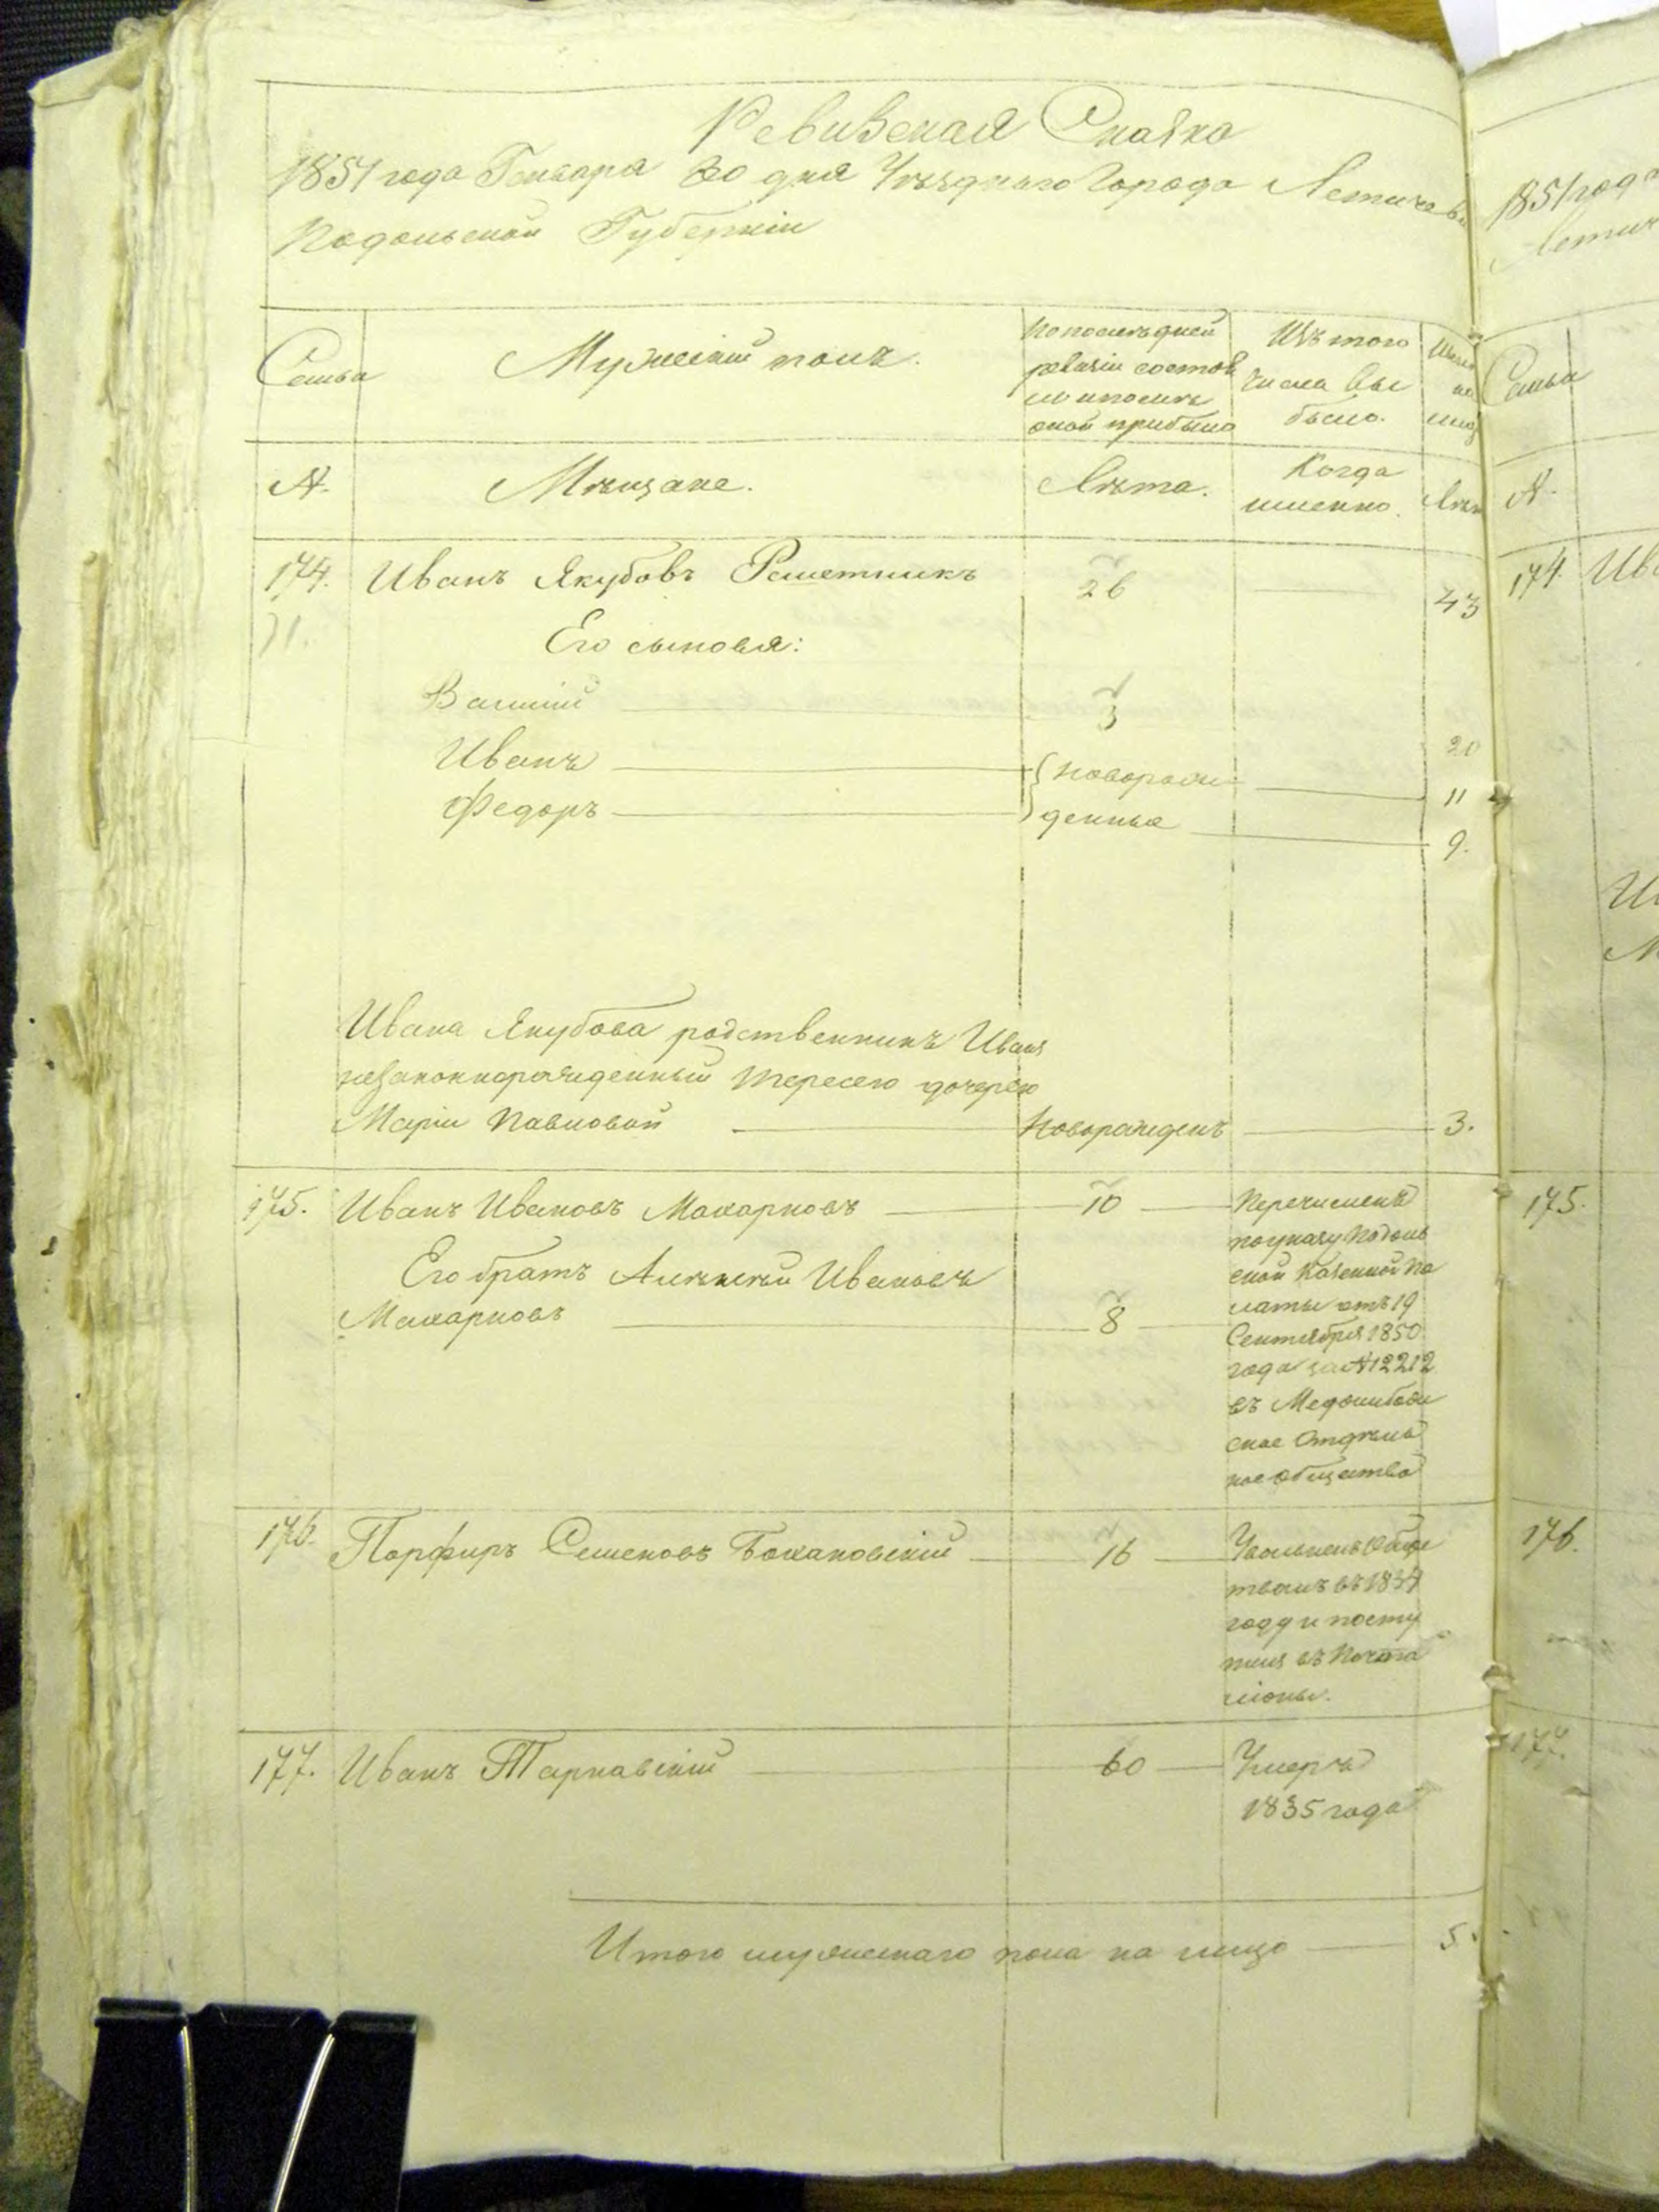 Ревизская Сказка
1851 года Генваря 30 дня Уѣзднаго Города Летичева
Подольской Губерніи
Семьи
Мужескій полъ.
По последней
ревизіи состоя
ло и после
оной прибыло
Изъ того
числа вы
было.
на
лицо
№.
Мѣщане.
Лѣта.
Когда
именно.
Лѣт
174. Иванъ Якубовъ Решетникъ 26 43
71.
Его сыновья:
Василій 3 20
Иванъ новорож 11
Федоръ денные 9.
Ивана Якубова родственникъ Иванъ
незаконнорожденный Тересею дочерью
Маріи Павловой Новорожденъ 3.
175. Иванъ Ивановъ Макарновъ 10 Перечисленъ
по указу Подоль
Его братъ Алексѣй Ивановъ
ской Казенной Па
Макарновъ 8 латы отъ 19
Сентября 1850
года за №12212
въ Меджибож
ское Отдѣль
ное общество
176. Порфиръ Семеновъ Бокановскій 16 Уволенъ Обще
твомъ въ 1834
году и посту
пилъ въ Почта
ліоны.
177. Иванъ Тарнавскій 60 Умеръ
1835 года
Итого мужескаго пола на лицо 5.
1851 года
Летич
Семьи
№.
174 Ив
175.
176.
177.